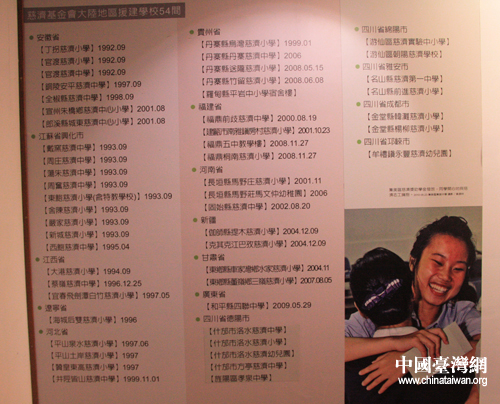 慈濟基金會大陸地區援建學校54間
安徽省
【丁拐慈濟小學】1992.09
【官渡慈濟中學】1992.09
【官渡慈濟小學】1992.09
【銅陵安平慈濟小學】1997.09
【全椒縣慈濟中學】1998.09
【宣州朱橋鄉慈濟中心小學】2001.08
【郎溪縣城東慈濟中心小學】2001.08
江蘇省興化市
【戴窯慈濟中學】1993.09
【周庄慈濟中學】1993.09
【滬朱慈濟小學】1993.09
【周奮慈濟小學】1993.09
【東鮑慈濟小學(含特教學校)】1993.09
【舍陳慈濟小學】1993.09
【嚴家慈濟小學】1993.09
【新城慈濟小學】1993.09
【西鮑慈濟中學】1995.04
江西省
【大港慈濟小學】1994.09
【蔡嶺慈濟中學】1996.12.25
【宜春飛劍潭白竹慈濟小學】1997.05
遼寧省
【海城后雙慈濟小學】1996
河北省
【平山泉水慈濟小學】1997.06
【平山土岸慈濟小學】1997
【贊皇東高慈濟小學】1997
【井陘微山慈濟中學】1999.11.01
貴州省
【丹寨縣烏灣慈濟小學】1999.01
【丹寨縣丹寨慈濟中學】2006
【丹寨縣送隴慈濟小學】2008.05.15
【丹寨縣竹留慈濟小學】2008.06.08
【羅甸縣平岩中小學宿舍樓】
福建省
【福鼎前歧慈濟中學】2000.08.19
【福鼎五中教學樓】2008.11.27
【福鼎桐南慈濟小學】2008.11.27
河南省
【長垣縣馬野庄慈濟小學】2001.11
【長垣縣馬野莊馬文仲幼稚園】2006
【固始縣慈濟中學】2002.08.20
新疆
【伽師縣提木慈濟小學】2004.12.09
【克其克江巴孜慈濟小學】2004.12.09
甘肅省
【東鄉縣車家灣鄉水家慈濟小學】2004.11
【東鄉縣董嶺鄉三嶺慈濟小學】2007.08.05
廣東省
【和平縣四聯中學】2009.05.29
四川省德陽市
【什邡市洛水慈濟中學】
【什邡市洛水慈濟小學】
【什邡市洛水慈濟幼兒園】
【什邡市方亭慈濟中學】
【旌陽區孝泉中學】
四川省綿陽市
【游仙區慈濟實驗中小學】
【游仙區朝陽慈濟學校】
四川省雅安市
【名山縣慈濟第一中學】
【名山縣前進慈濟小學】
四川省成都市
【金堂縣韓灘慈濟小學】
【金堂縣楊柳慈濟小學】
四川省邛崍市
【牟禮鎮永豐慈濟幼兒園】
中國臺灣網
www.chinataiwan.org